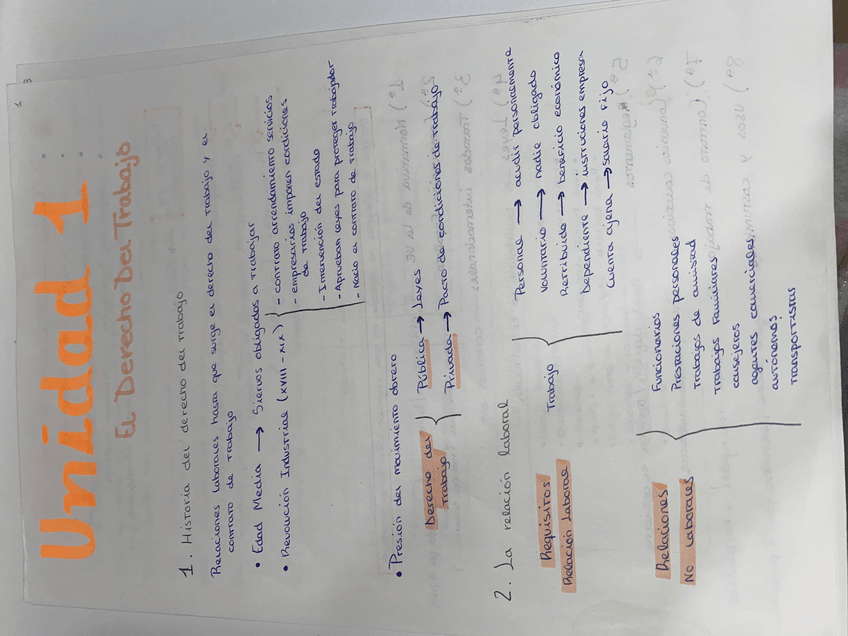 Unidad 1
El Derecho Del Trabajo
1. Historia del derecho del trabajo
Relaciones laborales hasta que surge el derecho del trabajo y el
contrato de trabajo
• Edad Media → Siervos obligados a trabajar
• Revolución Industrial (XVIII-XIX)
- contrato arrendamiento servicios
- empresarios imponen condiciones
de trabajo
- Intervención del estado
- Aprueban leyes para proteger trabajador
- Nacio el contrato de trabajo
• Presión del movimiento obrero
Derecho del
Trabajo
Pública → Leyes
Privada → Pacto de condiciones de trabajo
2. La relación laboral
Requisitos
Relación Laboral
Trabajo
Personal → acudir personalmente
Voluntario → nadie obligado
Retribuido → beneficio económico
Dependiente → instruciones empresa
Cuenta ajena → salario fijo
Relaciones
No Laborales
Funcionarios
Prestaciones personales
Trabajos de amistad
Trabajos Familiares
consejeros
agentes comerciales
autónomos
Transportistas